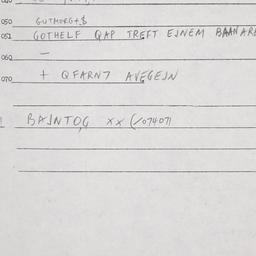 050 GUTMORG+$
051 GOTHELF QAP TREFT EJNEM BAANARE
060 —
070 + QFARN7 AVEGEJN
BAJNTOG xx (/07407)